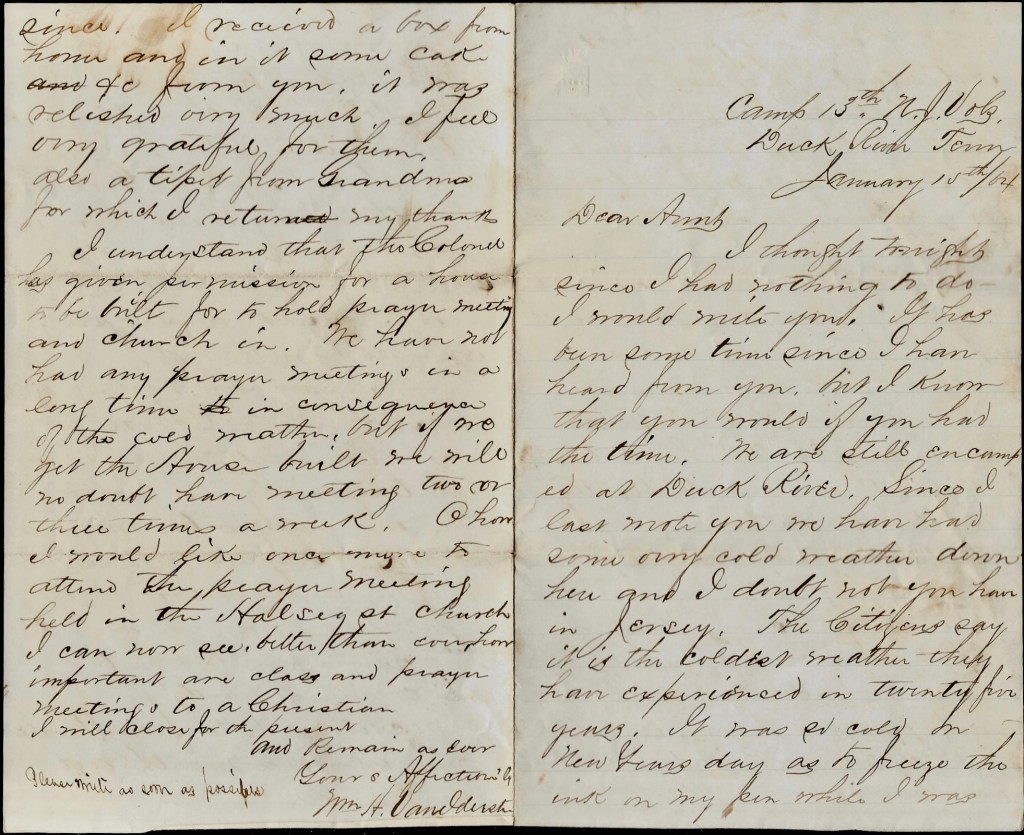 Camp 13th. N. J. Vols.
Duck River Tenn
January 15th/64
Dear Aunt
I thought tonight
since I had nothing to do
I would write you. It has
been some time since I have
heard from you. but I know
that you would if you had
the time. We are still encamp
ed at Duck River. Since I
last wrote you we have had
some very cold weather down
here and I doubt not you have
in Jersey. The Citizens say
it is the coldest weather they
have experienced in twenty five
years. It was so cold on
New Years day as to freeze the
ink on my pen while I was
since. I received a box from
home and in it some cake
and &c from you. it was
relished very much. I feel
very grateful for them.
also a tipet from Grandma
for which I returned my thanks
I understand that the Colonel
has given permission for a house
to be built for to hold prayer meeting
and church in. We have not
had any prayer meetings in a
long time in consequence
of the cold weather. but if we
get the House built we will
no doubt have meeting two or
three times a week. O how
I would like once more to
attend the prayer meeting
held in the Halsey st church
I can now see, better than ever, how
important are class and prayer
meetings to a Christian
I will close for the present
and Remain as ever
Yours Affectionately
Wm H. Van Iderstine
Please write as soon as possible